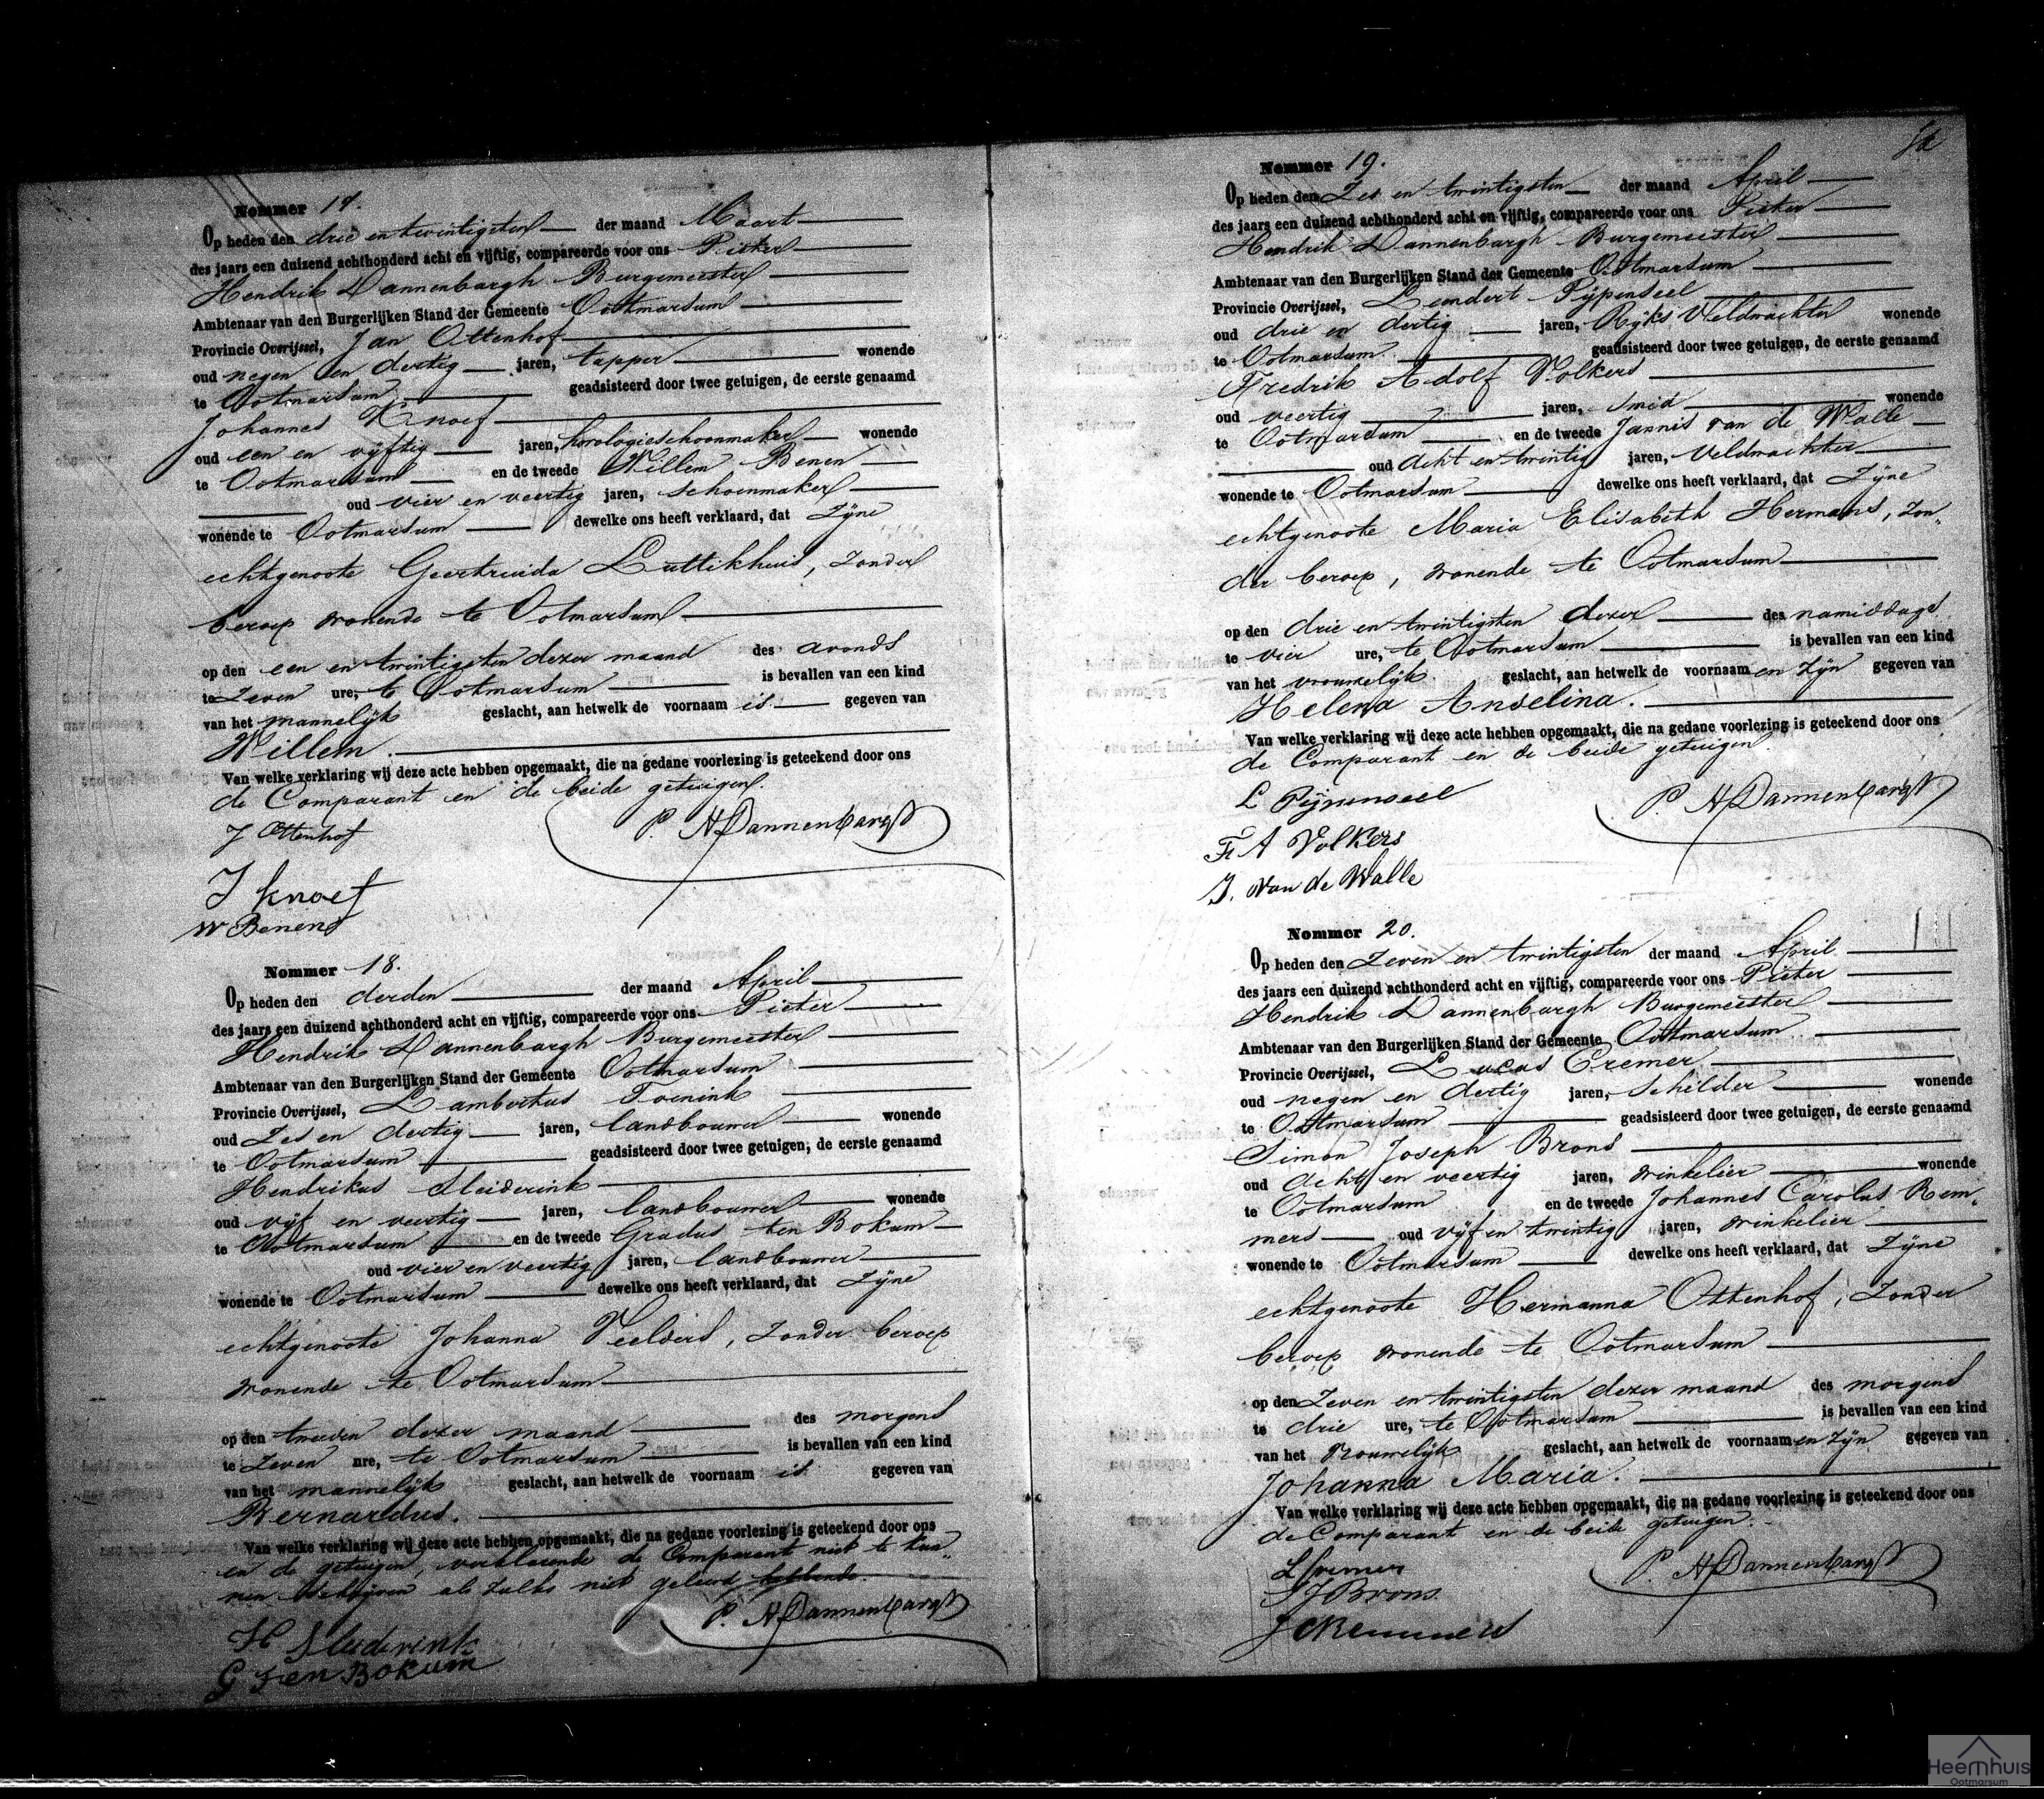 Nommer 17.
Op heden den drie en twintigsten der maand Maart
des jaars een duizend achthonderd acht en vijftig, compareerde voor ons Pieter
Hendrik Dannenbargh Burgemeester
Ambtenaar van den Burgerlijken Stand der Gemeente Ootmarsum
Provincie Overijssel, Jan Ottenhof
oud negen en dertig jaren, tapper wonende
te Ootmarsum geadsisteerd door twee getuigen, de eerste genaamd
Johannes Knoef
oud een en vijftig jaren, horologieschoonmaker wonende
te Ootmarsum en de tweede Willem Benen
oud vier en veertig jaren, schoenmaker
wonende te Ootmarsum dewelke ons heeft verklaard, dat Zijne
echtgenoote Geertruida Luttikhuis, zonder
beroep wonende te Ootmarsum
op den een en twintigsten dezer maand des avonds
te Zeven ure, te Ootmarsum is bevallen van een kind
van het mannelijk geslacht, aan hetwelk de voornaam is gegeven van
Willem.
Van welke verklaring wij deze acte hebben opgemaakt, die na gedane voorlezing is geteekend door ons
de Comparant en de beide getuigen.
J Ottenhof P. H Dannenbargh
J Knoef
W Benens
Nommer 18.
Op heden den derden der maand April
des jaars een duizend achthonderd acht en vijftig, compareerde voor ons Pieter
Hendrik Dannenbargh Burgemeester
Ambtenaar van den Burgerlijken Stand der Gemeente Ootmarsum
Provincie Overijssel, Lambertus Toenink
oud Zes en dertig jaren, landbouwer wonende
te Ootmarsum geadsisteerd door twee getuigen, de eerste genaamd
Hendrikus Sleiderink
oud vijf en veertig jaren, landbouwer wonende
te Ootmarsum en de tweede Gradus ten Bokum
oud vier en veertig jaren, landbouwer
wonende te Ootmarsum dewelke ons heeft verklaard, dat Zijne
echtgenoote Johanna Veelders, zonder beroep
wonende te Ootmarsum
op den tweeden dezer maand des morgens
te Zeven ure, te Ootmarsum is bevallen van een kind
van het mannelijk geslacht, aan hetwelk de voornaam is gegeven van
Bernardus.
Van welke verklaring wij deze acte hebben opgemaakt, die na gedane voorlezing is geteekend door ons
en de getuigen, verklarende de Comparant niet te kun„
nen schrijven als zulks niet geleerd hebbende.
P. H Dannenbargh
H Sleiderink
G ten Bokum
Nommer 19.
Op heden den Zes en twintigsten der maand April
des jaars een duizend achthonderd acht en vijftig, compareerde voor ons Pieter
Hendrik Dannenbargh Burgemeester
Ambtenaar van den Burgerlijken Stand der Gemeente Ootmarsum
Provincie Overijssel, Leendert Pijpenseel
oud drie en dertig jaren, Rijks Veldwachter wonende
te Ootmarsum geadsisteerd door twee getuigen, de eerste genaamd
Fredrik Adolf Volkers
oud veertig jaren, smid wonende
te Ootmarsum en de tweede Jannis van de Walle
oud acht en twintig jaren, Veldwachter
wonende te Ootmarsum dewelke ons heeft verklaard, dat Zijne
echtgenoote Maria Elisabeth Hermans, zon„
der beroep, wonende te Ootmarsum
op den drie en twintigsten dezer des namiddags
te vier ure, te Ootmarsum is bevallen van een kind
van het vrouwelijk geslacht, aan hetwelk de voornaam en zijn gegeven van
Helena Anselina.
Van welke verklaring wij deze acte hebben opgemaakt, die na gedane voorlezing is geteekend door ons
de Comparant en de beide getuigen.
L Pijpenseel P. H Dannenbargh
Fr A Volkers
J. van de Walle
Nommer 20.
Op heden den Zeven en twintigsten der maand April
des jaars een duizend achthonderd acht en vijftig, compareerde voor ons Pieter
Hendrik Dannenbargh Burgemeester
Ambtenaar van den Burgerlijken Stand der Gemeente Ootmarsum
Provincie Overijssel, Lucas Cremer
oud negen en dertig jaren, Schilder wonende
te Ootmarsum geadsisteerd door twee getuigen, de eerste genaamd
Simon Joseph Brons
oud acht en veertig jaren, winkelier wonende
te Ootmarsum en de tweede Johannes Carolus Rem„
mers oud vijf en twintig jaren, winkelier
wonende te Ootmarsum dewelke ons heeft verklaard, dat Zijne
echtgenoote Hermanna Ottenhof, zonder
beroep wonende te Ootmarsum
op den Zeven en twintigsten dezer maand des morgens
te drie ure, te Ootmarsum is bevallen van een kind
van het Vrouwelijk geslacht, aan hetwelk de voornaam en zijn gegeven van
Johanna Maria.
Van welke verklaring wij deze acte hebben opgemaakt, die na gedane voorlezing is geteekend door ons
de Comparant en de beide getuigen.
L Cremer P. H Dannenbargh
S J Brons
J C Remmers
Heemhuis
Ootmarsum